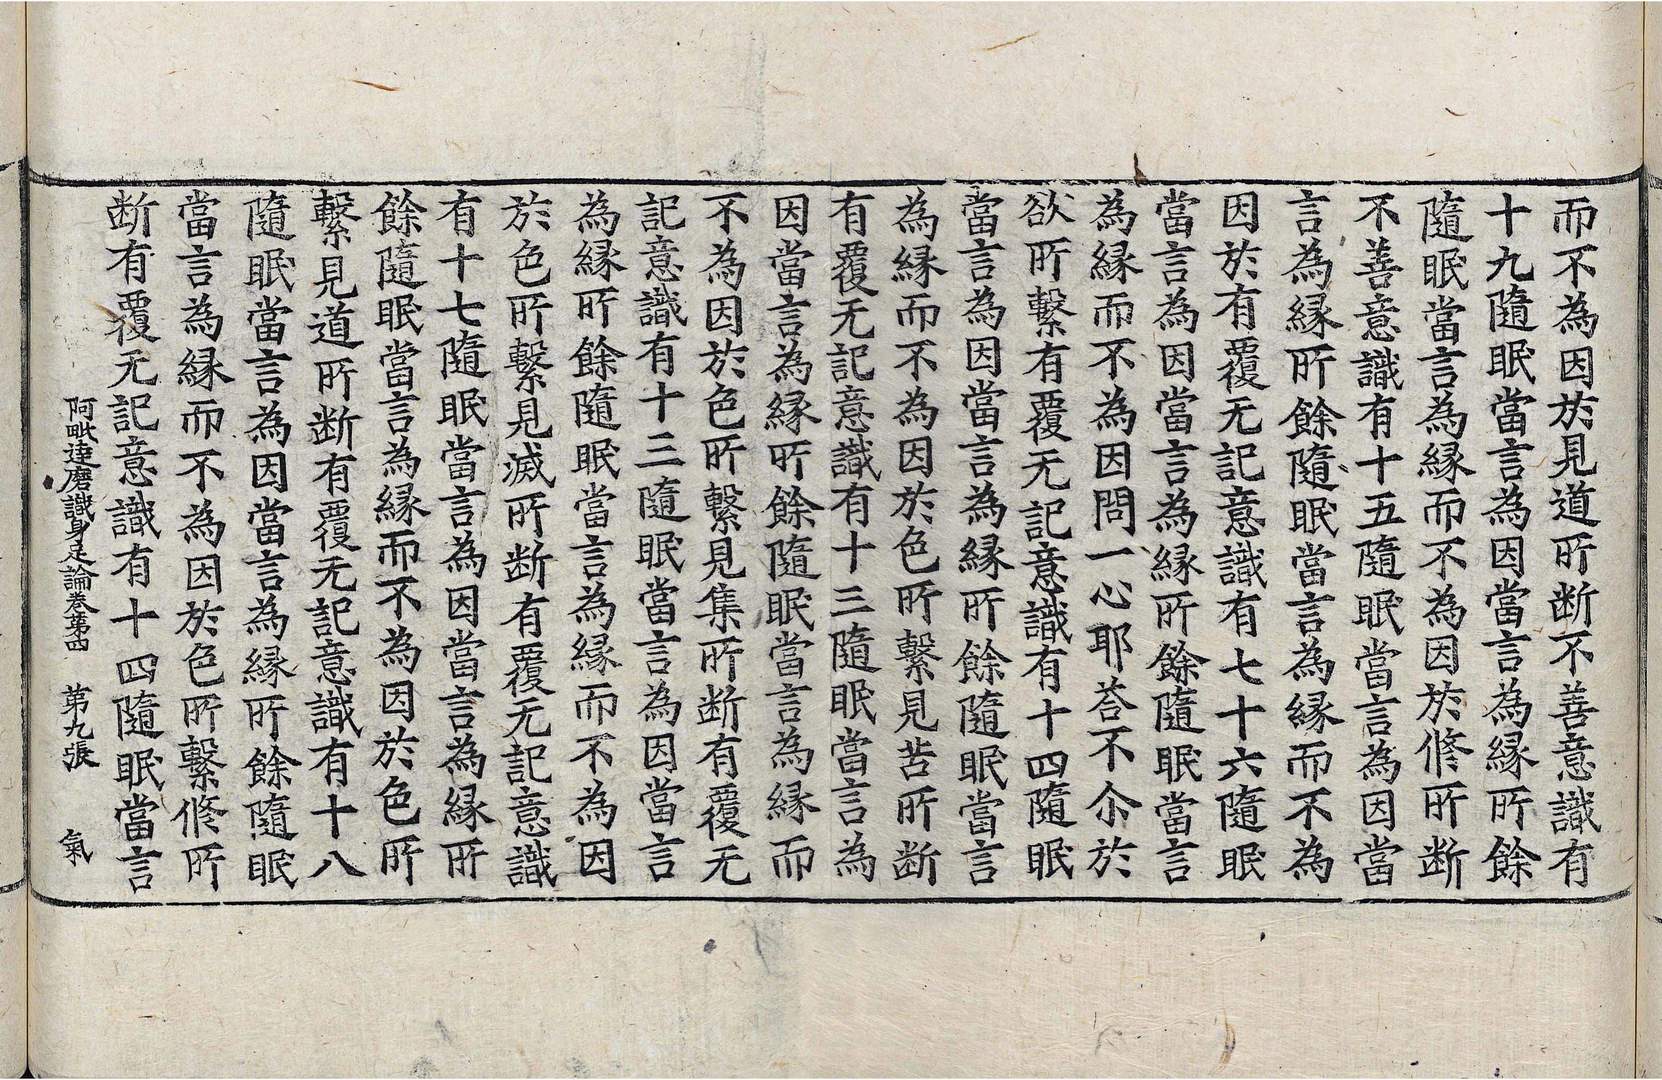 而不為因於見道所断不善意識有
十九隨眠當言為因當言為縁所餘
隨眠當言為縁而不為因於修所断
不善意識有十五隨眠當言為因當
言為縁所餘隨眠當言為縁而不為
因於有覆无記意識有七十六隨眠
當言為因當言為縁所餘隨眠當言
為縁而不為因問一心耶荅不尒於
欲所繫有覆无記意識有十四隨眠
當言為因當言為縁所餘隨眠當言
為縁而不為因於色所繫見苦所断
有覆无記意識有十三隨眠當言為
因當言為縁所餘隨眠當言為縁而
不為因於色所繫見集所断有覆无
記意識有十三隨眠當言為因當言
為縁所餘隨眠當言為縁而不為因
於色所繫見滅所断有覆无記意識
有十七隨眠當言為因當言為縁所
餘隨眠當言為縁而不為因於色所
繫見道所断有覆无記意識有十八
隨眠當言為因當言為縁所餘隨眠
當言為縁而不為因於色所繫修所
断有覆无記意識有十四隨眠當言
阿毗達磨識身足論卷第四 第九張 氣